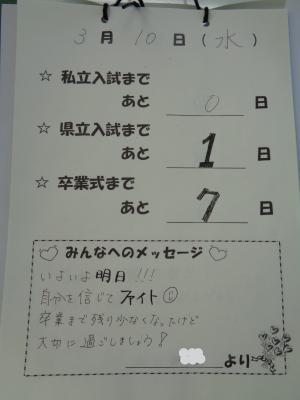 3月10日(水)
☆ 私立入試まで
あと 0 日
☆ 県立入試まで
あと 1 日
☆ 卒業式まで
あと 7 日
♡みんなへのメッセージ♡
いよいよ明日!!!
自分を信じてファイト☺
卒業まで残り少なくなったけど
大切に過ごしましょう!
より